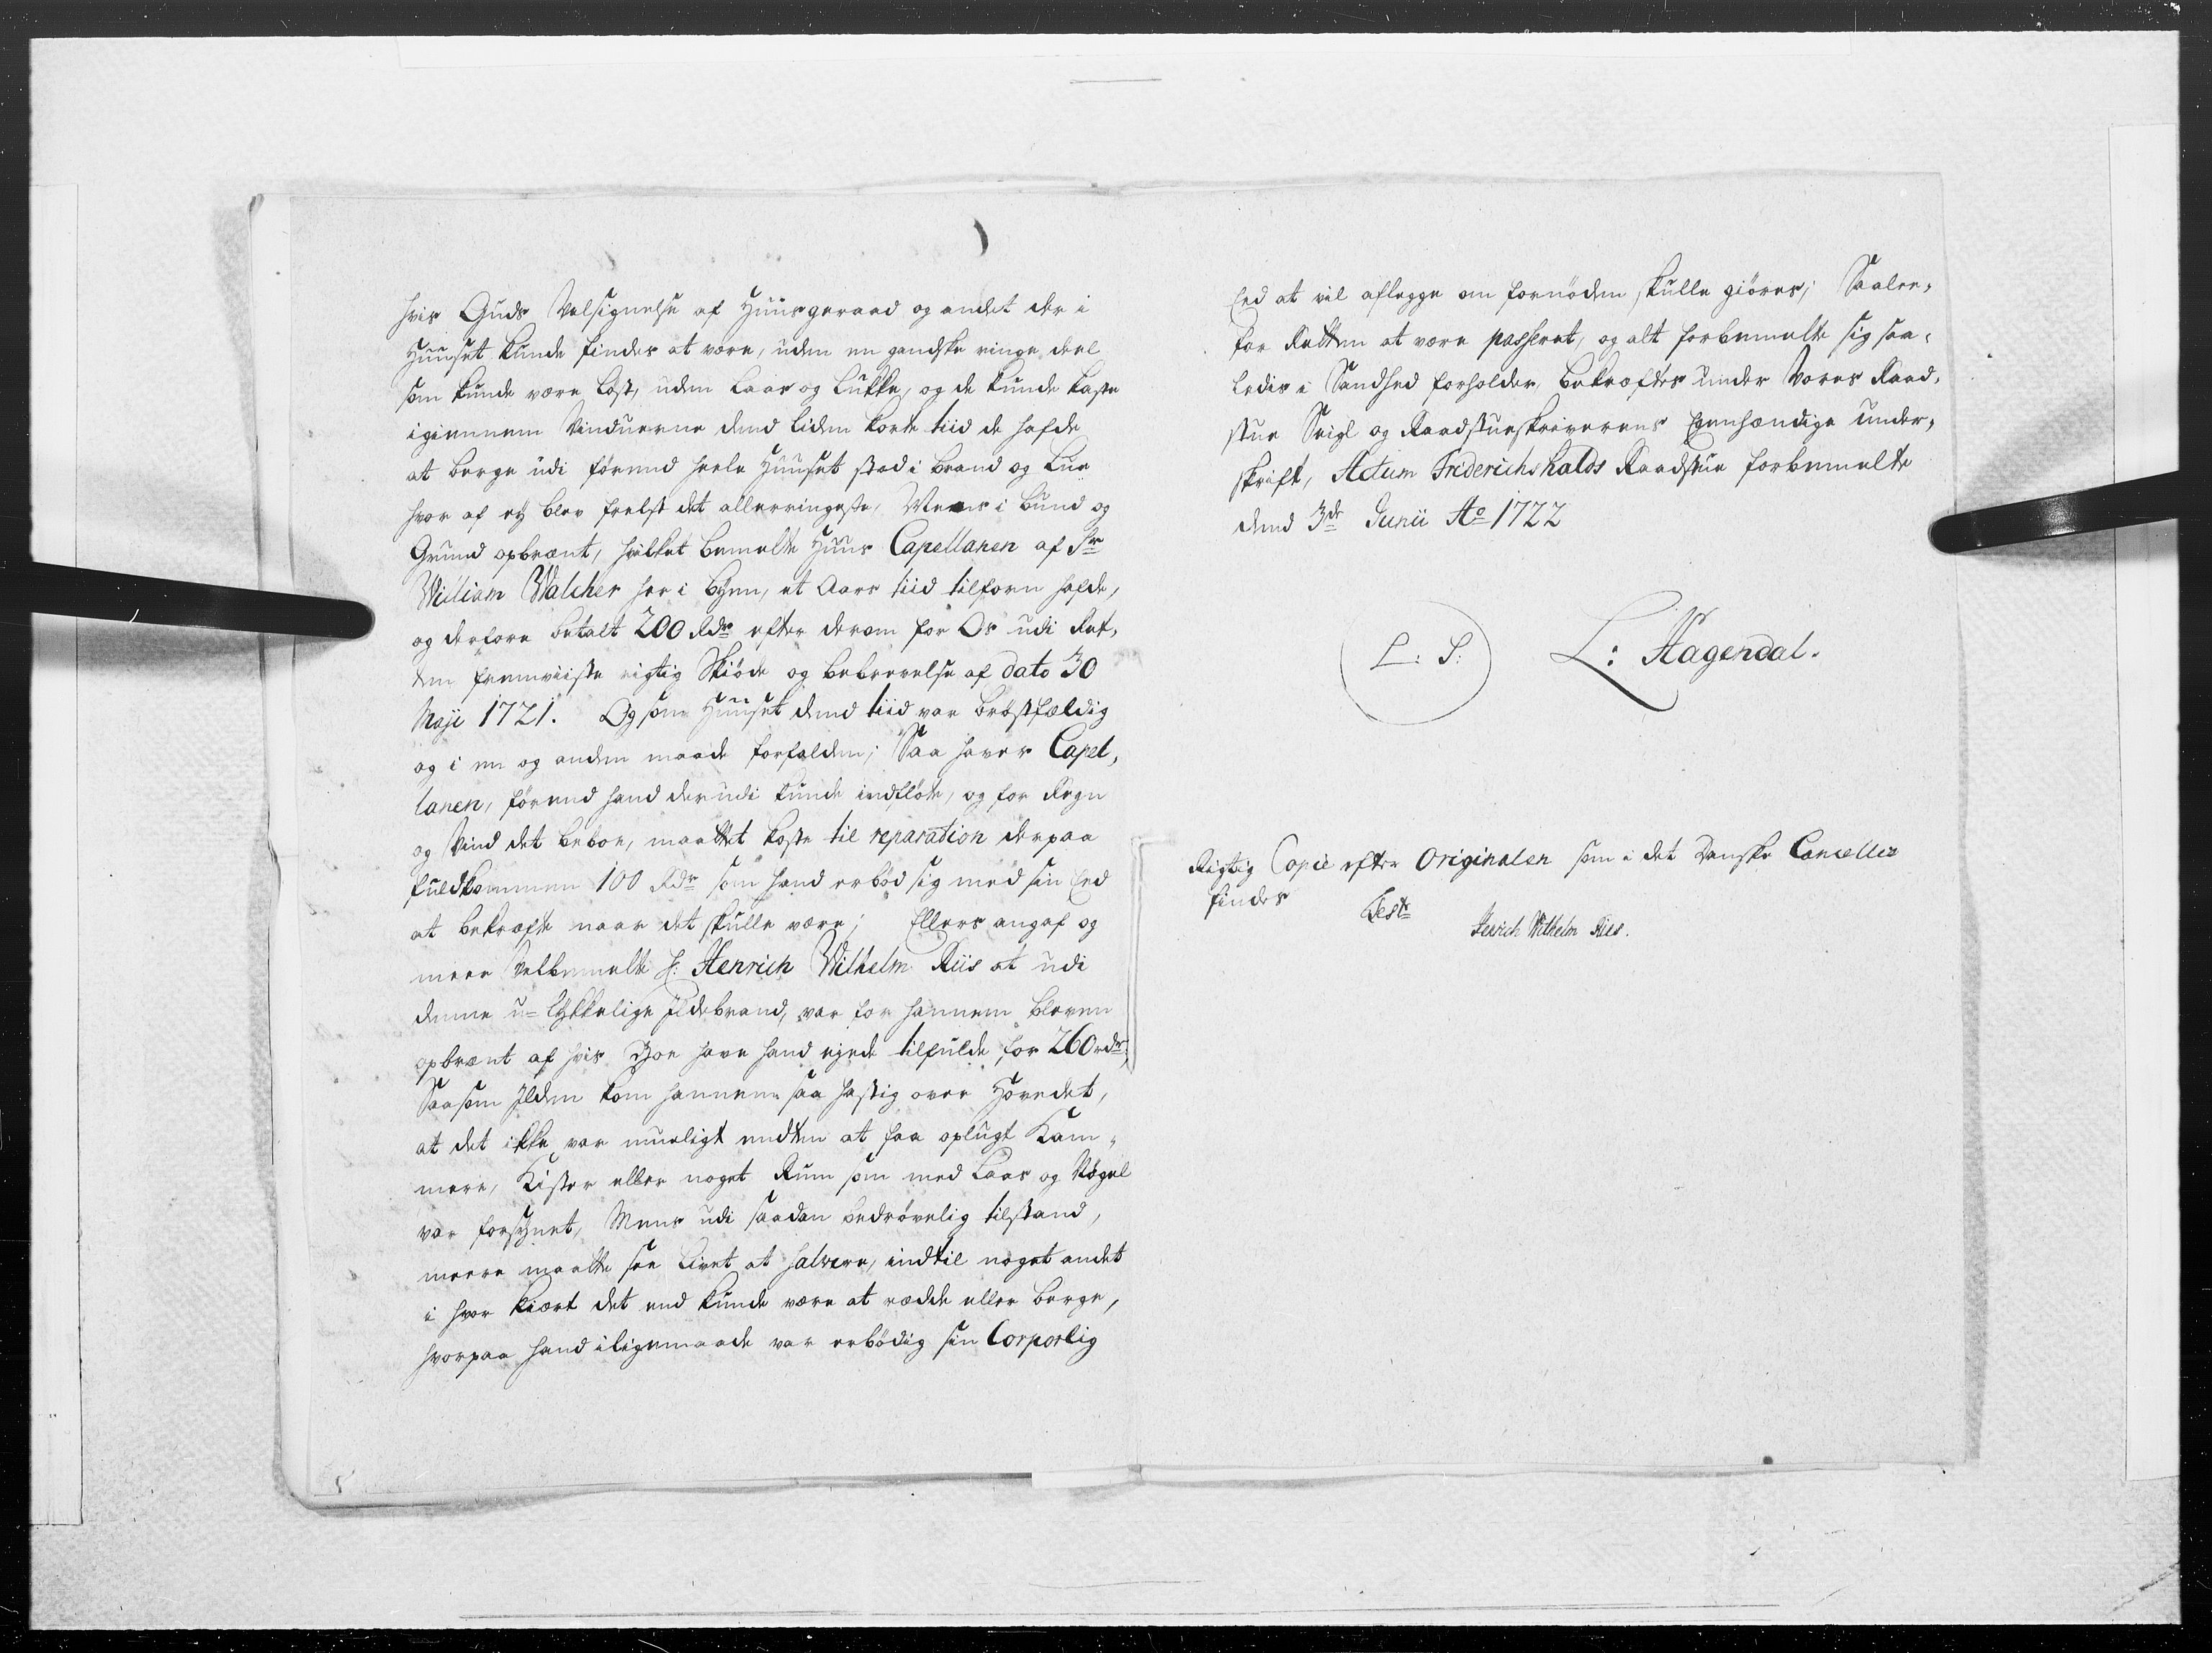 hvis Guds Velsignelse af Huusgeraad og andet der i
Huuset kunde findes at være, uden en gandske ringe deel
som kunde være løst, uden Laas og Lukke, og de kunde kaste
igiennem Vinduerne dend liden korte tiid de hafde
at berge udi førend heele Huuset stod i brand og Lue
hvor af ey blev frelst det allerringeste, Mens i bund og
Grund opbrænt, hvilket bemelte Huus Capellanen af Sr
William Walcher her i Byen, et Aars tiid tilforn hafde,
og derfore betalt 200 Rdr efter derom for Os udi Ret-
ten fremviiste rigtig Skiøde og bebrevelse af dato 30
Maji 1721. Og som Huuset dend tiid var brøstfældig
og i en og anden maade forfalden; Saa haver Capel-
lanen, førend hand derudi kunde indfløte, og for Regn
og Vind det beboe, maattet koste til reparation derpaa
fuldkommen 100 Rdr som hand erbød sig med sin Eed
at bekræfte naar det skulle være; Ellers angaf og
meer Velbemelte H: Henrich Wilhelm Riis at udi
denne u-lykkelige Ildebrand, var for hannem bleven
opbrænt af hvis Boe have hand ejede tilfulde for 260 rdr;
Saasom Ilden kom hannem saa hastig over Hovedet,
at det ikke var mueligt endten at faa oplugt Kam-
mere, Kister eller noget Rum som med Laas og Nøgel
var forsynet, Mens udi saadan bedrøvelig tilstand,
meere maatte see Livet at salvere, indtil noget andet
i hvor kiært det end kunde være at rædde eller berge,
hvorpaa hand iligemaade var erbødig sin Corporlig
Eed at vil aflegge om fornøden skulle giøres; Saalee-
for Retten at være passeret, og alt forbemelte sig saa-
ledis i Sandhed forholder, bekræftes under Vores Raad-
stue Seigl og Raadstueskriverens Egenhændige under-
skrift, Actum Friderichshalds Raadstue forbemelte
dend 3de Junii Ao 1722
L: S: L: Hagendal.
Rigtig Copie efter Originalen som i det Danske Cancellie
findes
Test
Henrich Wilhelm Riis.